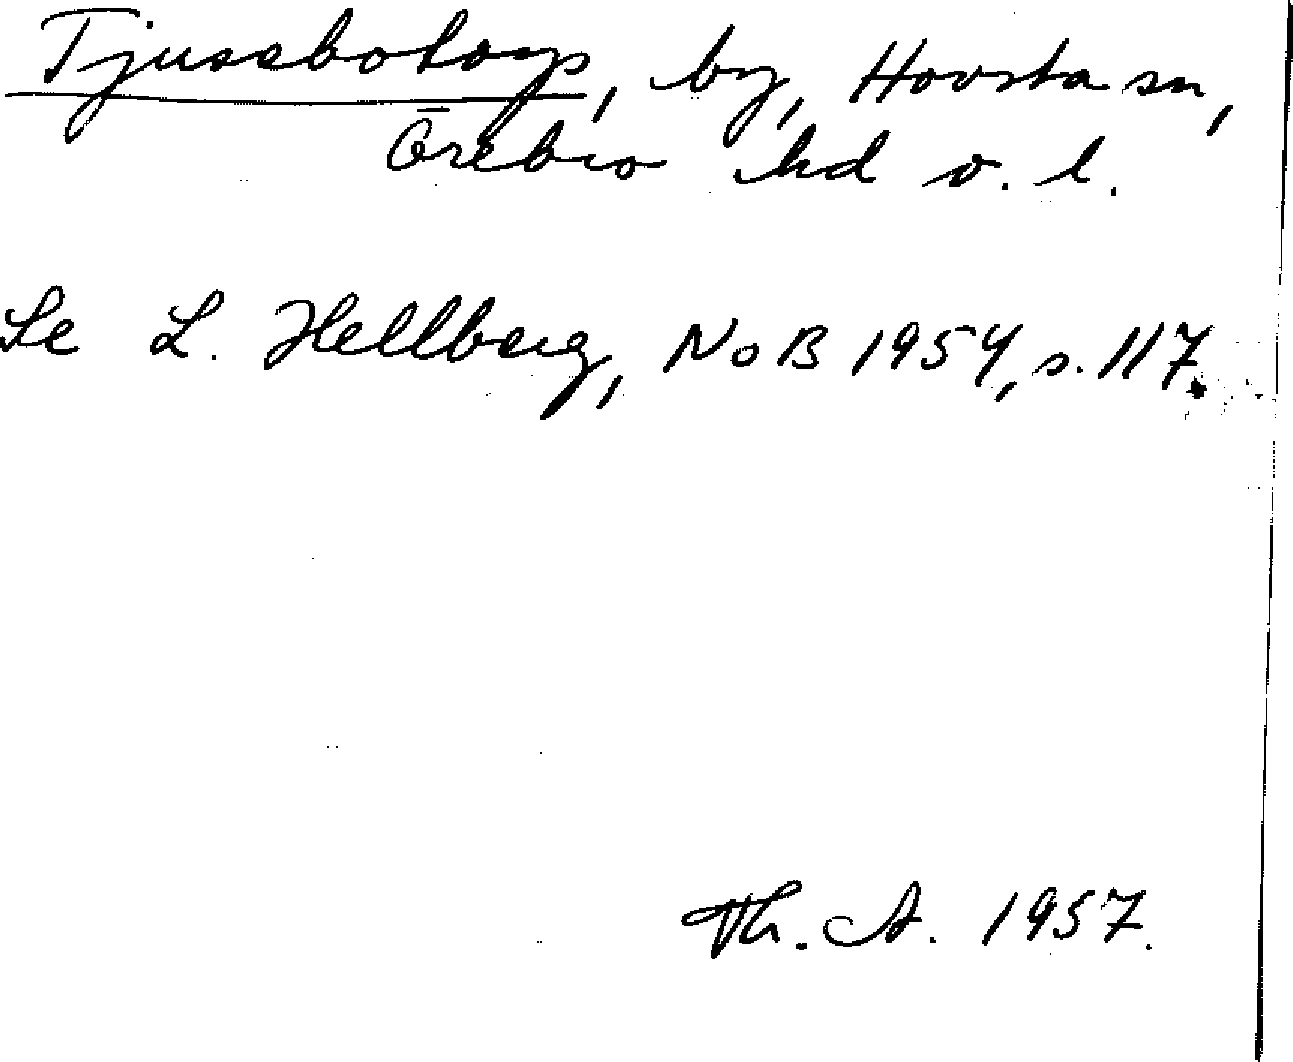 Tjusebotorp, by, Hovsta sn,
Örebro hd o. l.
Se L. Hellberg, NoB 1954, s. 117.
Th. A. 1957.